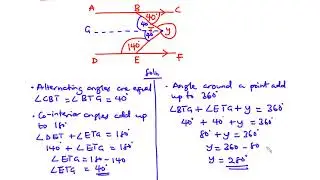 A B C
40°
G 40° y
40°
140°
D E F
Soln
• Alternating angles are equal
∠CBT = ∠BTG = 40°
• Co-interior angles add up
to 180°
∠DET + ∠ETG = 180°
140° + ∠ETG = 180°
∠ETG = 180 - 140
∠ETG = 40°
• Angle around a point add
up to 360°
∠BTG + ∠ETG + y = 360°
40° + 40° + y = 360°
80° + y = 360°
y = 360 - 80
y = 280°